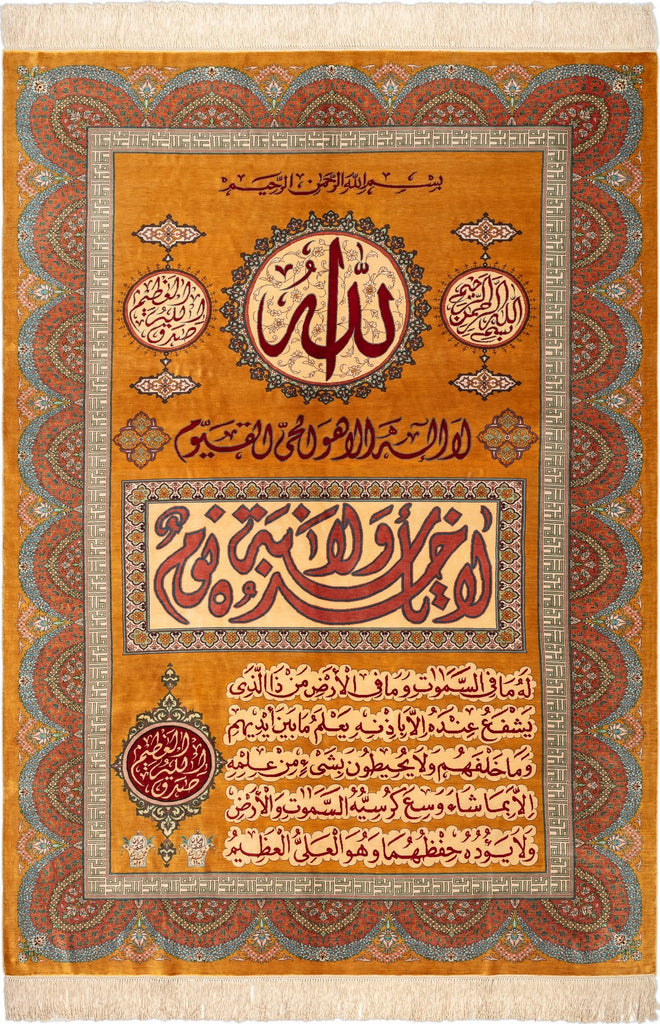 بسم الله الرحمن الرحيم
الله
بسم الله الرحمن الرحيم
صدق الله العظيم
لا اله الا هو الحي القيوم
لا تأخذه سنة ولا نوم
له ما في السموت وما في الأرض من ذا الذي
يشفع عنده الا باذنه يعلم ما بين أيديهم
وما خلفهم ولا يحيطون بشيء من علمه
الا بما شاء وسع كرسيه السموت والأرض
ولا يؤده حفظهما وهو العلي العظيم
صدق الله العظيم